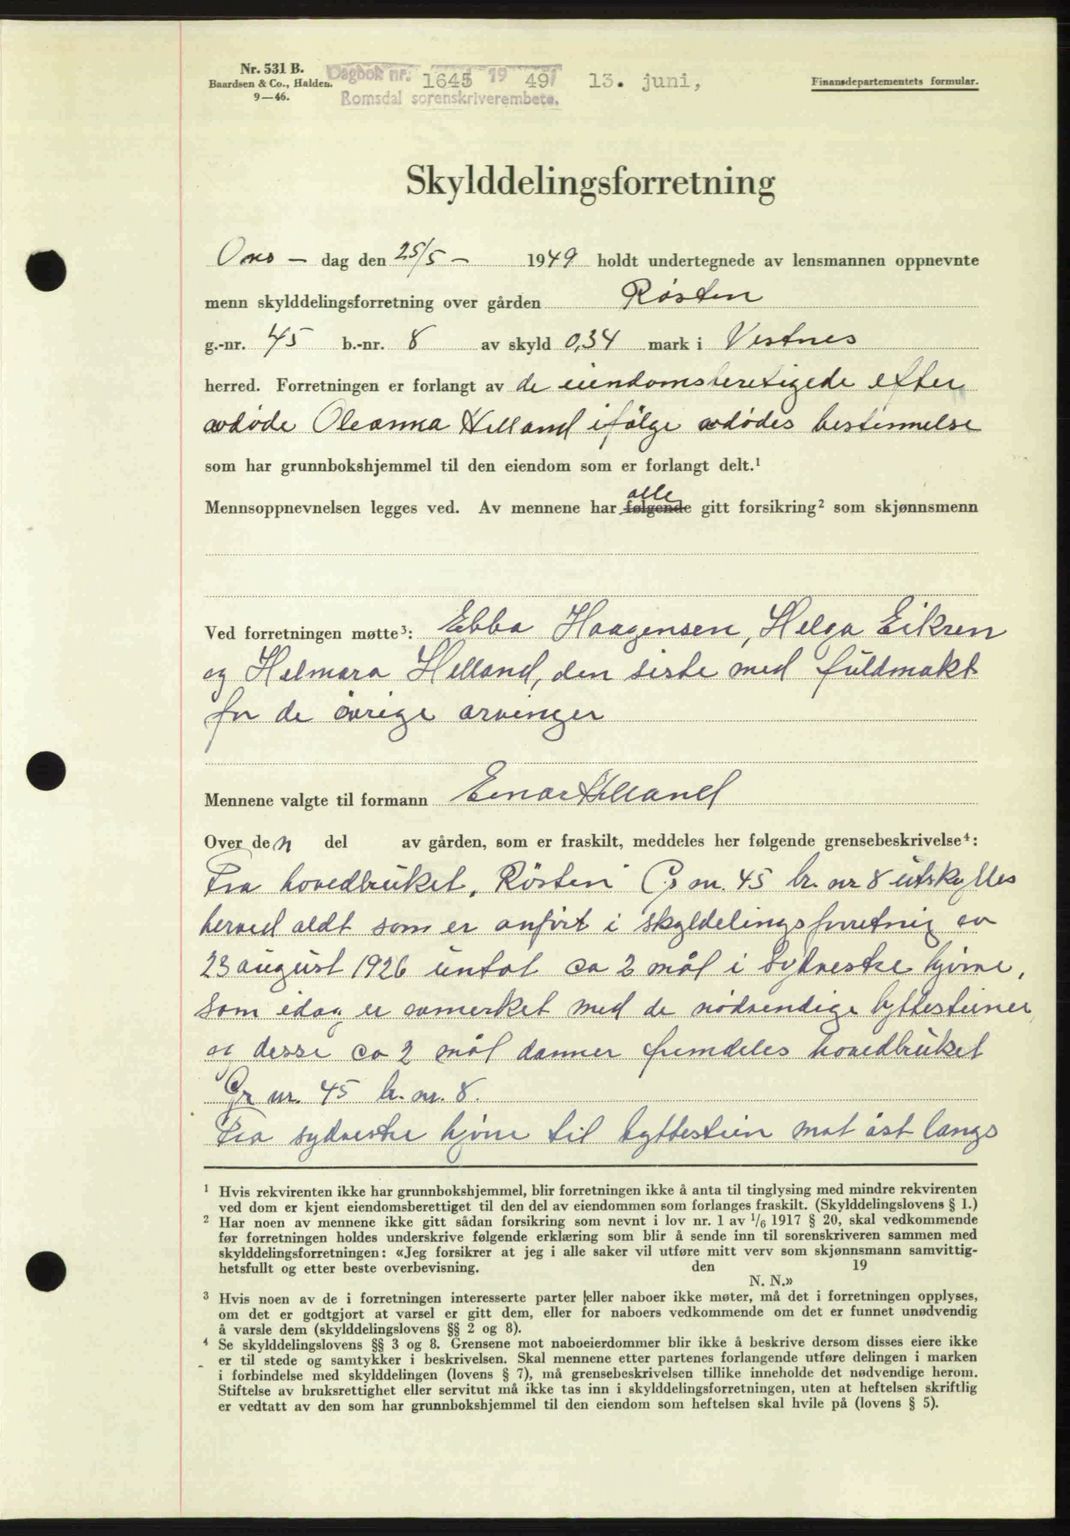 Nr. 531 B.
Baardsen & Co., Halden.
9—46.
Dagbok nr. 1645 19 49, 13. juni,
Romsdal sorenskriverembete.
Finansdepartementets formular.
Skylddelingsforretning
Ons – dag den 25/5 – 1949 holdt undertegnede av lensmannen oppnevnte
menn skylddelingsforretning over gården Røsten
g.-nr. 45 b.-nr. 8 av skyld 0,34 mark i Vestnes
herred. Forretningen er forlangt av de eiendomsberetigede efter
avdøde Oleanna Helland ifølge avdødes bestemmelse
som har grunnbokshjemmel til den eiendom som er forlangt delt.¹
Mennsoppnevnelsen legges ved. Av mennene har følgende alle gitt forsikring² som skjønnsmenn
Ved forretningen møtte³: Ebba Haagensen, Helga Eikren
og Helmara Helland, den siste med fuldmakt
for de øvrige arvinger
Mennene valgte til formann Einar Helland
Over den del av gården, som er fraskilt, meddeles her følgende grensebeskrivelse⁴:
Fra hovedbruket, "Røsten" Gr nr. 45 br. nr 8 utskylles
herved aldt som er anført i skyldelingsforretnig av
23 august 1926 untat ca 2 mål i sydvestre hjørne,
som idag er avmerket med de nødvendige byttesteiner,
og desse ca 2 mål danner fremdeles hovedbruket
Gr nr. 45 br. nr. 8.
Fra sydvestre hjørne til byttestein mot øst langs
¹ Hvis rekvirenten ikke har grunnbokshjemmel, blir forretningen ikke å anta til tinglysing med mindre rekvirenten
ved dom er kjent eiendomsberettiget til den del av eiendommen som forlanges fraskilt. (Skylddelingslovens § 1.)
² Har noen av mennene ikke gitt sådan forsikring som nevnt i lov nr. 1 av 1/6 1917 § 20, skal vedkommende
før forretningen holdes underskrive følgende erklæring som blir å sende inn til sorenskriveren sammen med
skylddelingsforretningen: «Jeg forsikrer at jeg i alle saker vil utføre mitt verv som skjønnsmann samvittig-
hetsfullt og etter beste overbevisning. den 19
N. N.»
³ Hvis noen av de i forretningen interesserte parter eller naboer ikke møter, må det i forretningen opplyses,
om det er godtgjort at varsel er gitt dem, eller for naboers vedkommende om det er funnet unødvendig
å varsle dem (skylddelingslovens §§ 2 og 8).
⁴ Se skylddelingslovens §§ 3 og 8. Grensene mot naboeierdommer blir ikke å beskrive dersom disses eiere ikke
er til stede og samtykker i beskrivelsen. Skal mennene etter partenes forlangende utføre delingen i marken
i forbindelse med skylddelingen (lovens § 7), må grensebeskrivelsen tillike inneholde det nødvendige herom.
Stiftelse av bruksrettighet eller servitut må ikke tas inn i skylddelingsforretningen, uten at heftelsen skriftlig
er vedtatt av den som har grunnbokshjemmel til den eiendom som heftelsen skal hvile på (lovens § 5).